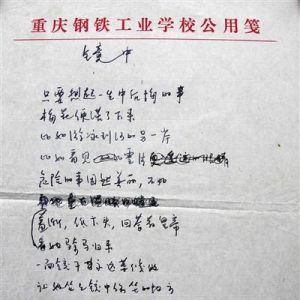 重庆钢铁工业学校公用笺
镜中
只要想起一生中后悔的事
梅花便落了下来
比如游泳到河的另一岸
比如看见
危险的事固然美丽，不如
低下头，回答着皇帝
看她骑马归来
一面镜子永远等候她
让她坐在镜中常坐的地方